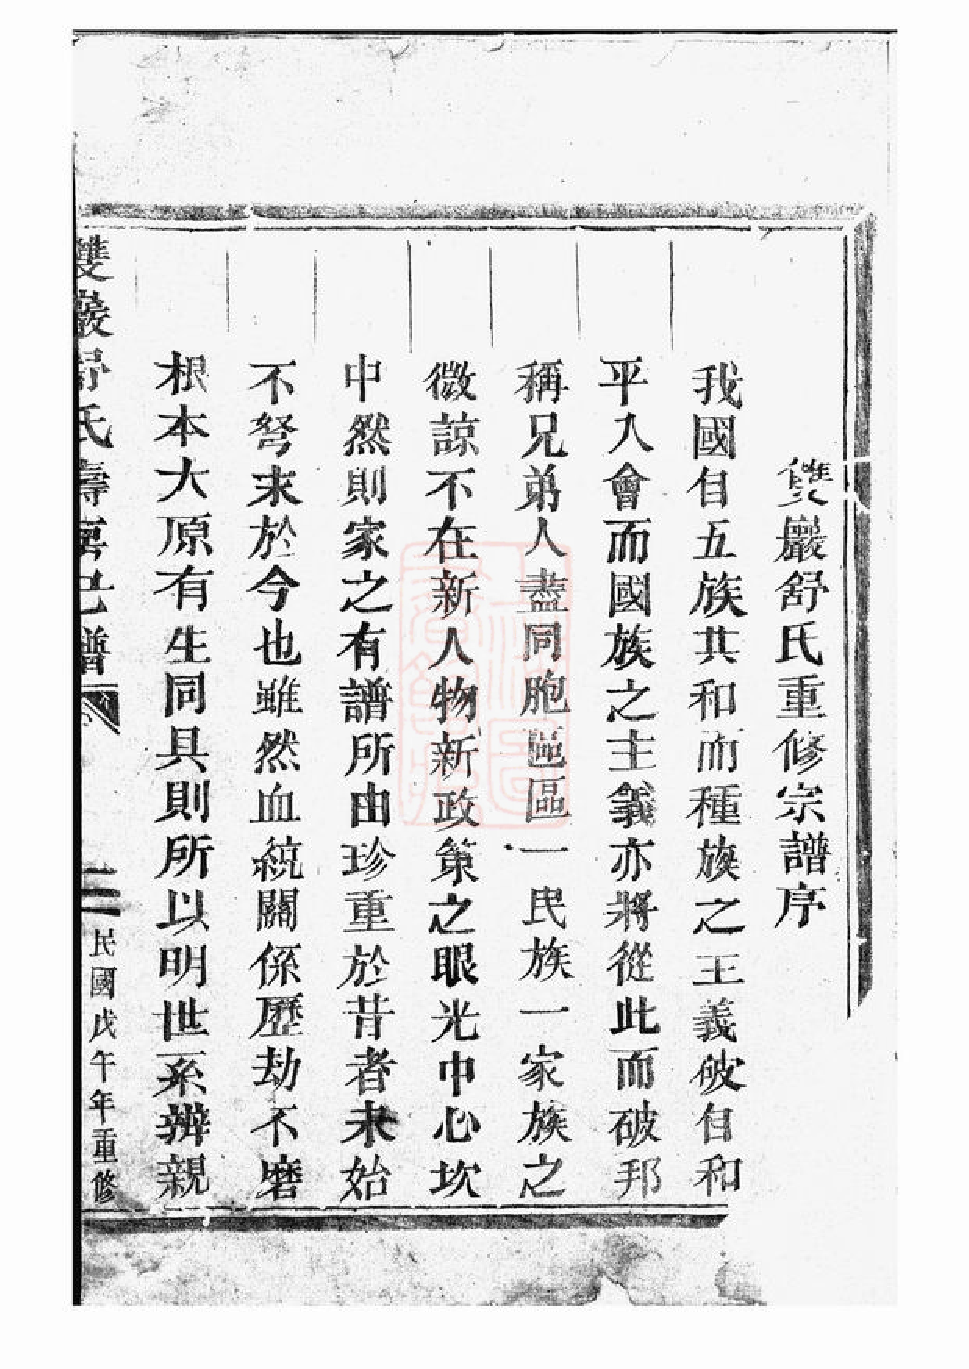 雙巖舒氏重修宗譜序
我國自五族共和而種族之主義破自和
平入會而國族之主義亦將從此而破邦
稱兄弟人盡同胞區區一民族一家族之
微諒不在新人物新政策之眼光中心坎
中然則家之有譜所由珍重於昔者未始
不弩末於今也雖然血統關係歷劫不磨
根本大原有生同具則所以明世系辨親
雙巖舒氏壽房已譜
二
民國戊午年重修